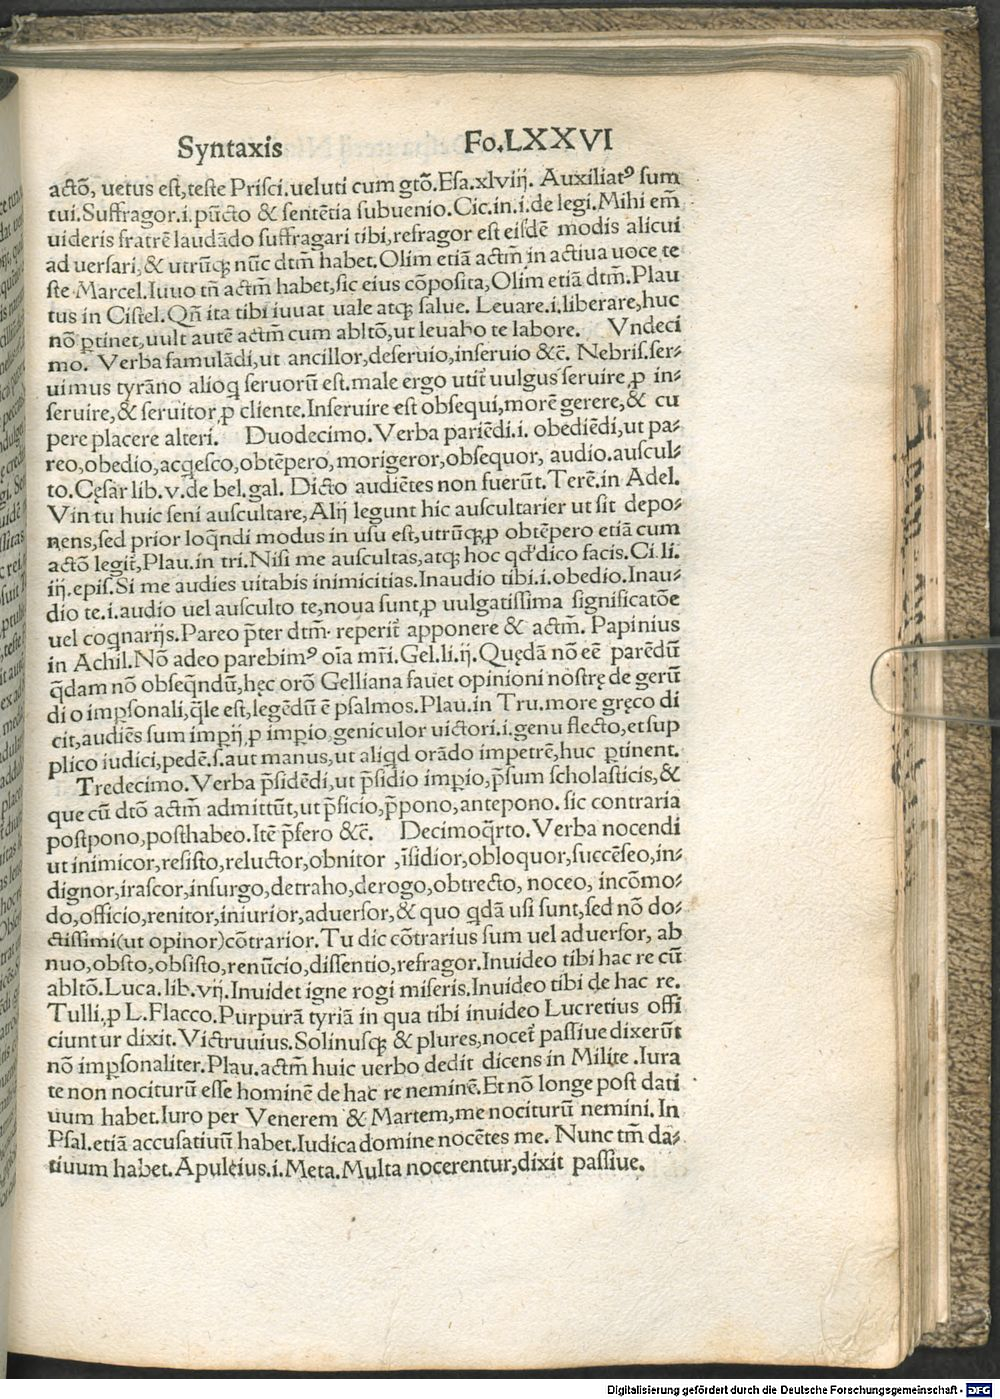 Syntaxis Fo.LXXVI
actõ, uetus est, teste Prisci.ueluti cum gtõ.Esa.xlviij. Auxiliatꝰ sum
tui.Suffragor.i.pũcto & sentẽtia subuenio.Cic.in.i.de legi.Mihi em̃
uideris fratrẽ laudãdo suffragari tibi,refragor est eisdẽ modis alicui
aduersari,& utrũqꝫ nũc dtm̃ habet.Olim etiã actm̃ in actiua uoce te
ste Marcel.Iuuo tñ actm̃ habet,sic eius cõposita,Olim etiã dtm̃.Plau
tus in Cistel.Qñ ita tibi iuuat uale atqꝫ salue. Leuare.i.liberare,huc
nõ ꝑtinet,uult autẽ actm̃ cum abltõ,ut leuabo te labore. Vndeci
mo. Verba famulãdi,ut ancillor,deseruio,inseruio &c̃. Nebris.ser⸗
uimus tyrãno alioq̃ seruorũ est.male ergo utit᷑ uulgus seruire,ꝓ in⸗
seruire,& seruitor,ꝓ cliente.Inseruire est obsequi,morẽ gerere,& cu
pere placere alteri. Duodecimo.Verba pariẽdi.i. obediẽdi,ut pa⸗
reo,obedio,acq̃esco,obtẽpero,morigeror,obsequor, audio.auscul⸗
to.Cęsar lib.v.de bel.gal. Dicto audiẽtes non fuerũt.Terẽ.in Adel.
Vin tu huic seni auscultare,Alij legunt hic auscultarier ut sit depo⸗
nens,sed prior loq̃ndi modus in usu est,utrũqꝫ,ꝓ obtẽpero etiã cum
actõ legit᷑,Plau.in tri.Nisi me auscultas,atqꝫ hoc qd' dico facis.Ci.li.
iij.epis.Si me audies uitabis inimicitias.Inaudio tibi.i.obedio.Inau⸗
dio te.i.audio uel ausculto te,noua sunt,ꝓ uulgatissima significatõe
uel coq̃narijs.Pareo p̃ter dtm̃· reperit᷑ apponere & actm̃. Papinius
in Achil.Nõ adeo parebimꝰ oĩa mr̃i.Gel.li.ij.Quędã nõ eẽ parẽdũ
q̃dam nõ obseq̃ndũ,hęc orõ Gelliana fauet opinioni nostrę de gerũ
di o imꝑsonali,q̃le est,legẽdũ ẽ psalmos.Plau.in Tru.more gręco di
cit,audiẽs sum imꝑij,ꝓ imꝑio geniculor uictori.i.genu flecto,et sup
plico iudici,pedẽ.s.aut manus,ut aliqd orãdo impetrẽ,huc ꝑtinent.
Tredecimo.Verba p̃sidẽdi,ut p̃sidio imꝑio,p̃sum scholasticis,&
que cũ dtõ actm̃ admittũt,ut p̃ficio,p̃pono,antepono. sic contraria
postpono,posthabeo.Itẽ p̃fero &c̃. Decimoq̃rto.Verba nocendi
ut inimicor,resisto,reluctor,obnitor ,ĩsidior,obloquor,succẽseo,in⸗
dignor,irascor,insurgo,detraho,derogo,obtrecto, noceo, incõmo⸗
do,officio,renitor,iniurior,aduersor,& quo q̃dã usi sunt,sed nõ do⸗
ctissimi(ut opinor)cõtrarior.Tu dic cõtrarius sum uel aduersor, ab
nuo,obsto,obsisto,renũcio,dissentio,refragor.Inuideo tibi hac re cũ
abltõ.Luca.lib.vij.Inuidet igne rogi miseris.Inuideo tibi de hac re.
Tulli.ꝓ L.Flacco.Purpurã tyriã in qua tibi inuideo Lucretius offi
ciuntur dixit.Victruuius.Solinusqꝫ & plures,nocet᷑ passiue dixerũt
nõ imꝑsonaliter.Plau.actm̃ huic uerbo dedit dicens in Milite .Iura
te non nociturũ esse hominẽ de hac re neminẽ.Et nõ longe post dati
uum habet.Iuro per Venerem & Martem,me nociturũ nemini. In
Psal.etiã accusatiuũ habet.Iudica domine nocẽtes me. Nunc tm̃ da⸗
tiuum habet.Apuleius.i.Meta.Multa nocerentur,dixit passiue.
Digitalisierung gefördert durch die Deutsche Forschungsgemeinschaft - DFG